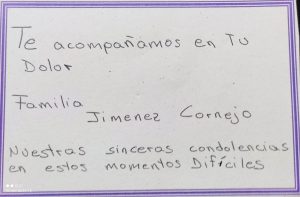 Te acompañamos en Tu
Dolor
Familia
Jimenez Cornejo
Nuestras sinceras condolencias
en estos momentos Difíciles